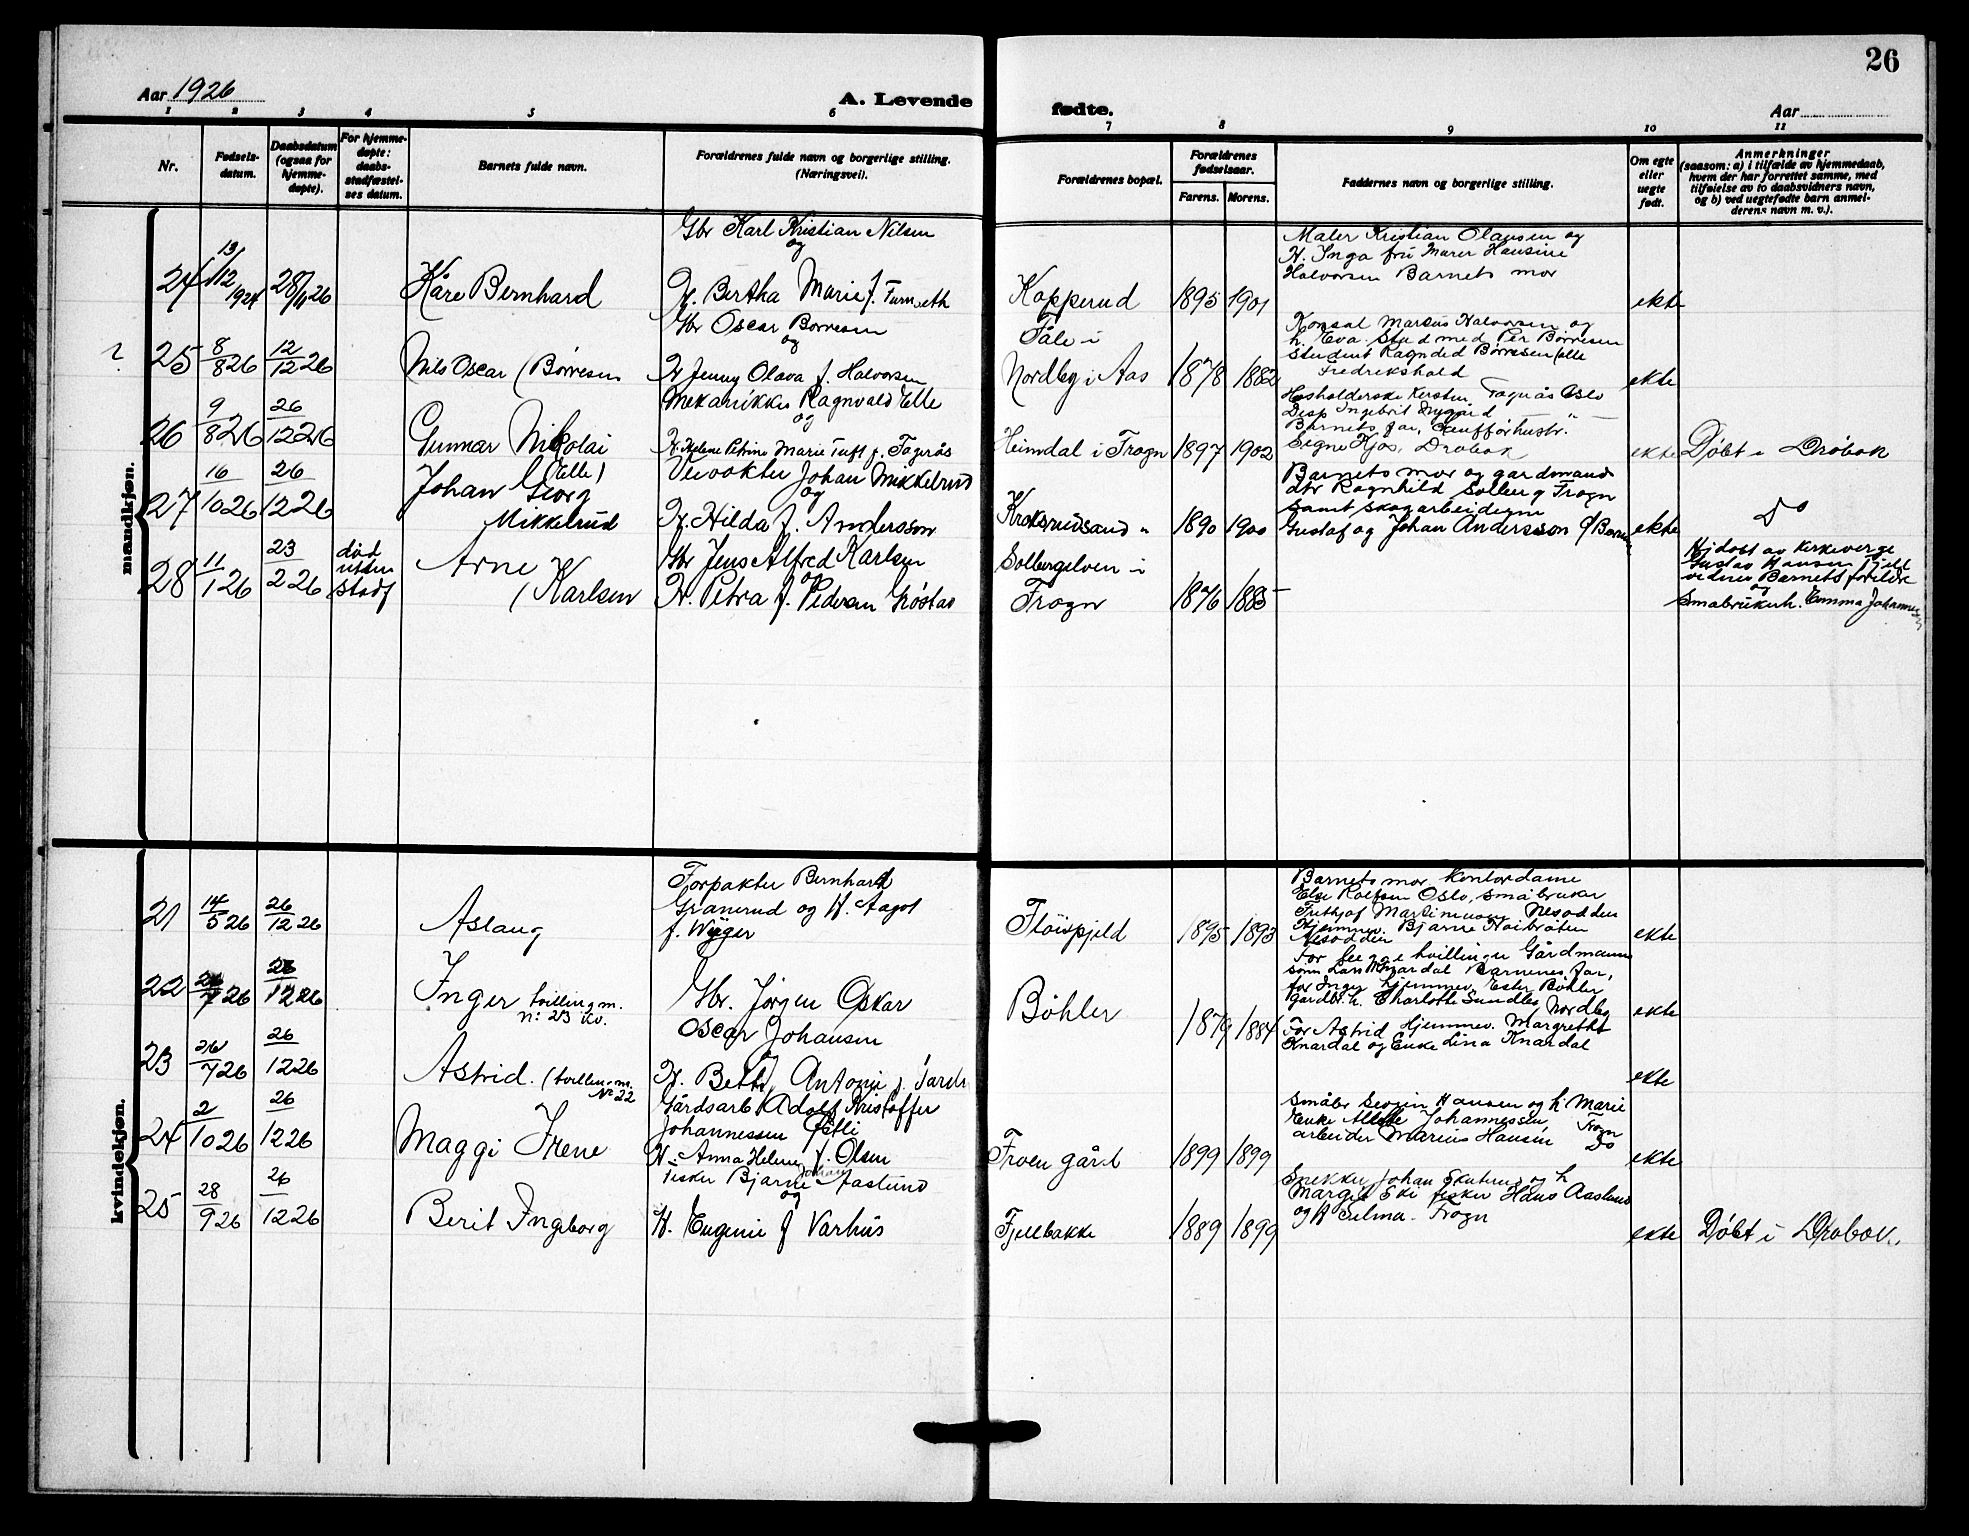 26
Aar 1926
A. Levende
fødte.
Aar
1 2 3 4 5 6 7 8 9 10 11
Nr.
Fødsels-
datum.
Daabsdatum
(ogsaa for
hjemme-
døpte).
For hjemme-
døpte:
daabs-
stadfæstel-
ses datum.
Barnets fulde navn.
Forældrenes fulde navn og borgerlige stilling.
(Næringsvei).
Forældrenes bopæl.
Forældrenes
fødselsaar.
Farens. Morens.
Faddernes navn og borgerlige stilling.
Om egte
eller
uegte
født.
Anmerkninger
(saasom: a) i tilfælde av hjemmedaab,
hvem der har forrettet samme, med
tilføielse av to daabsvidners navn,
og b) ved uegtefødte barn anmel-
derens navn m. v.).
mandkjøn.
24
13/12 1924
28/11 26
Kåre Bernhard
Gbr Karl Kristian Nilsen
og
H. Bertha Marie f. Furuseth
Kopperud
1895 1901
Maler Kristian Olausen og
H. Inga fru Maren Hansine
Halvorsen Barnets mor
ekte
25
8/8 26
12/12 26
Nils Oscar (Børresen
Gbr Oscar Børresen
og
H Jenny Olava f. Halvorsen
Tåle i
Nordby i Aas
1878 1882
Konsul Marius Halvorsen og
h. Eva. Stud med Per Børresen
Student Ragnhild Børresen (alle
Fredrikshald
ekte
26
9/8 26
26/12 26
Gunnar Nikolai
(Elle)
Mekanikker Ragnvald Elle
og
H. Helene Petrine Marie Tuft f. Fagerås
Heimdal i Frogn
1897 1902
Husholderske Kersten Fagerås Oslo
Disp Ingebrit Nygård "
Barnets far, Chaufförhustr.
Signe Kjøs, Drøbak
ekte
Døbt i Drøbak
27
16/10 26
26/12 26
Johan Georg
Mikkelrud
Johan Mikkelrud
og
H. Hilda f. Andersson
Krokrudsand "
1890 1900
Barnets mor og gardmands
dtr Ragnhild Solberg Frogn
samt skogarbeiderne
Gustaf og Johan Andersson
ekte
Do
28
11/1 26
23/2 26
død
uten
stadf
Arne
(Karlsen
Gbr Jens Alfred Karlsen
og
H. Petra f. Pedersen Grøstad
Solbergelven i
Frogn
1876 1885
Hjdøbt av kirkeverge
Gustav Hansen Fjeld
vidner Barnets foreldre
og
Småbrukerh. Emma Johannesen
kvindekjøn.
21
14/5 26
26/12 26
Aslaug
Forpakter Bernhard
Granerud og H. Aagot
f. Wiiger
Fløispjeld
1895 1893
Barnets mor, kontordame
Else Rolfsen Oslo, småbruker
Frithjof Martinusen Nesodden
Hjemmev. Bjarne Høibråten
Nesodden
ekte
22
26/7 26
26/12 26
Inger tvilling m.
nr: 23 kv.
Gbr. Jørgen Oskar
Oscar Johansen
Bøhler
1879 1884
For begge tvillinger Gårdmanns
søn Lars Knardal Barnenes far,
for Inger hjemmev. Ester Bøhler
gårdbr.h. Charlotte Sundby Nordby
ekte
23
26/7 26
26/12 26
Astrid. (tvilling m.
No 22
H. Betty Antonie f.
For Astrid Hjemmev. Margrethe
Knardal og Enke Lina Knardal
ekte
24
2/10 26
26/12 26
Maggi Irene
Gårdsarb Adolf Kristoffer
Johannessen
H. Anna Helene f. Olsen
Froen gård
1899 1899
Småbr Hansen og h. Marie
Enke Johannessen,
arbeider Marius Hansen Frogn
Do
ekte
25
28/9 26
26/12 26
Berit Ingeborg
Fisker Bjarne Johan Aaslund
og
H. Eugenie f Varhus
Fjellbakke
1889 1899
Snekker Johan Skuterud og h
Margit Ski fisker Hans Aaslund
og H Selma. Frogn
ekte
Døbt i Drøbak.